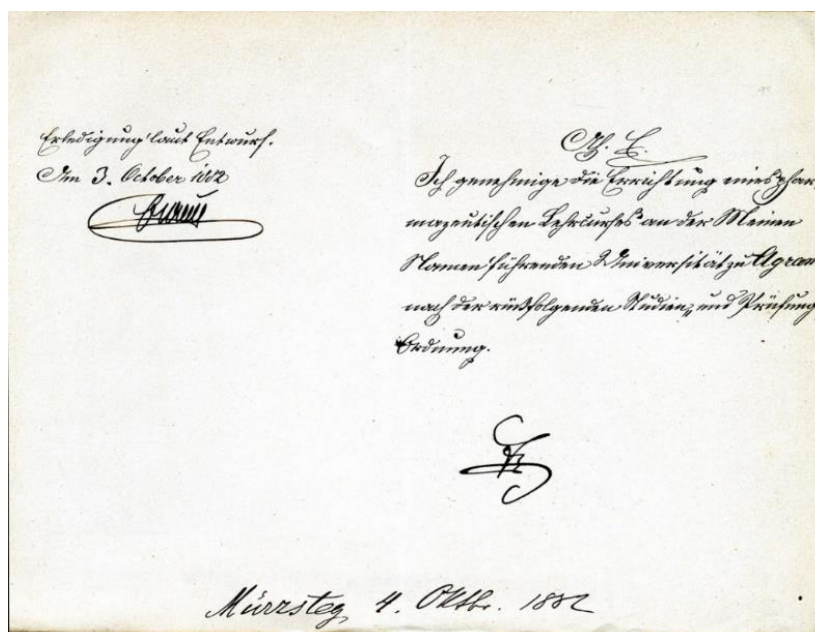 Erledigung laut Entwurf.
Am 3. October 1882
Braun
A. E.
Ich genehmige die Errichtung eines phar
mazeutischen Lehrcurses an der Meinen
Namen führenden Universität zu Agram
nach der rückfolgenden Studien, und Prüfung
Ordnung.
Mürzsteg, 4. Oktbr. 1882